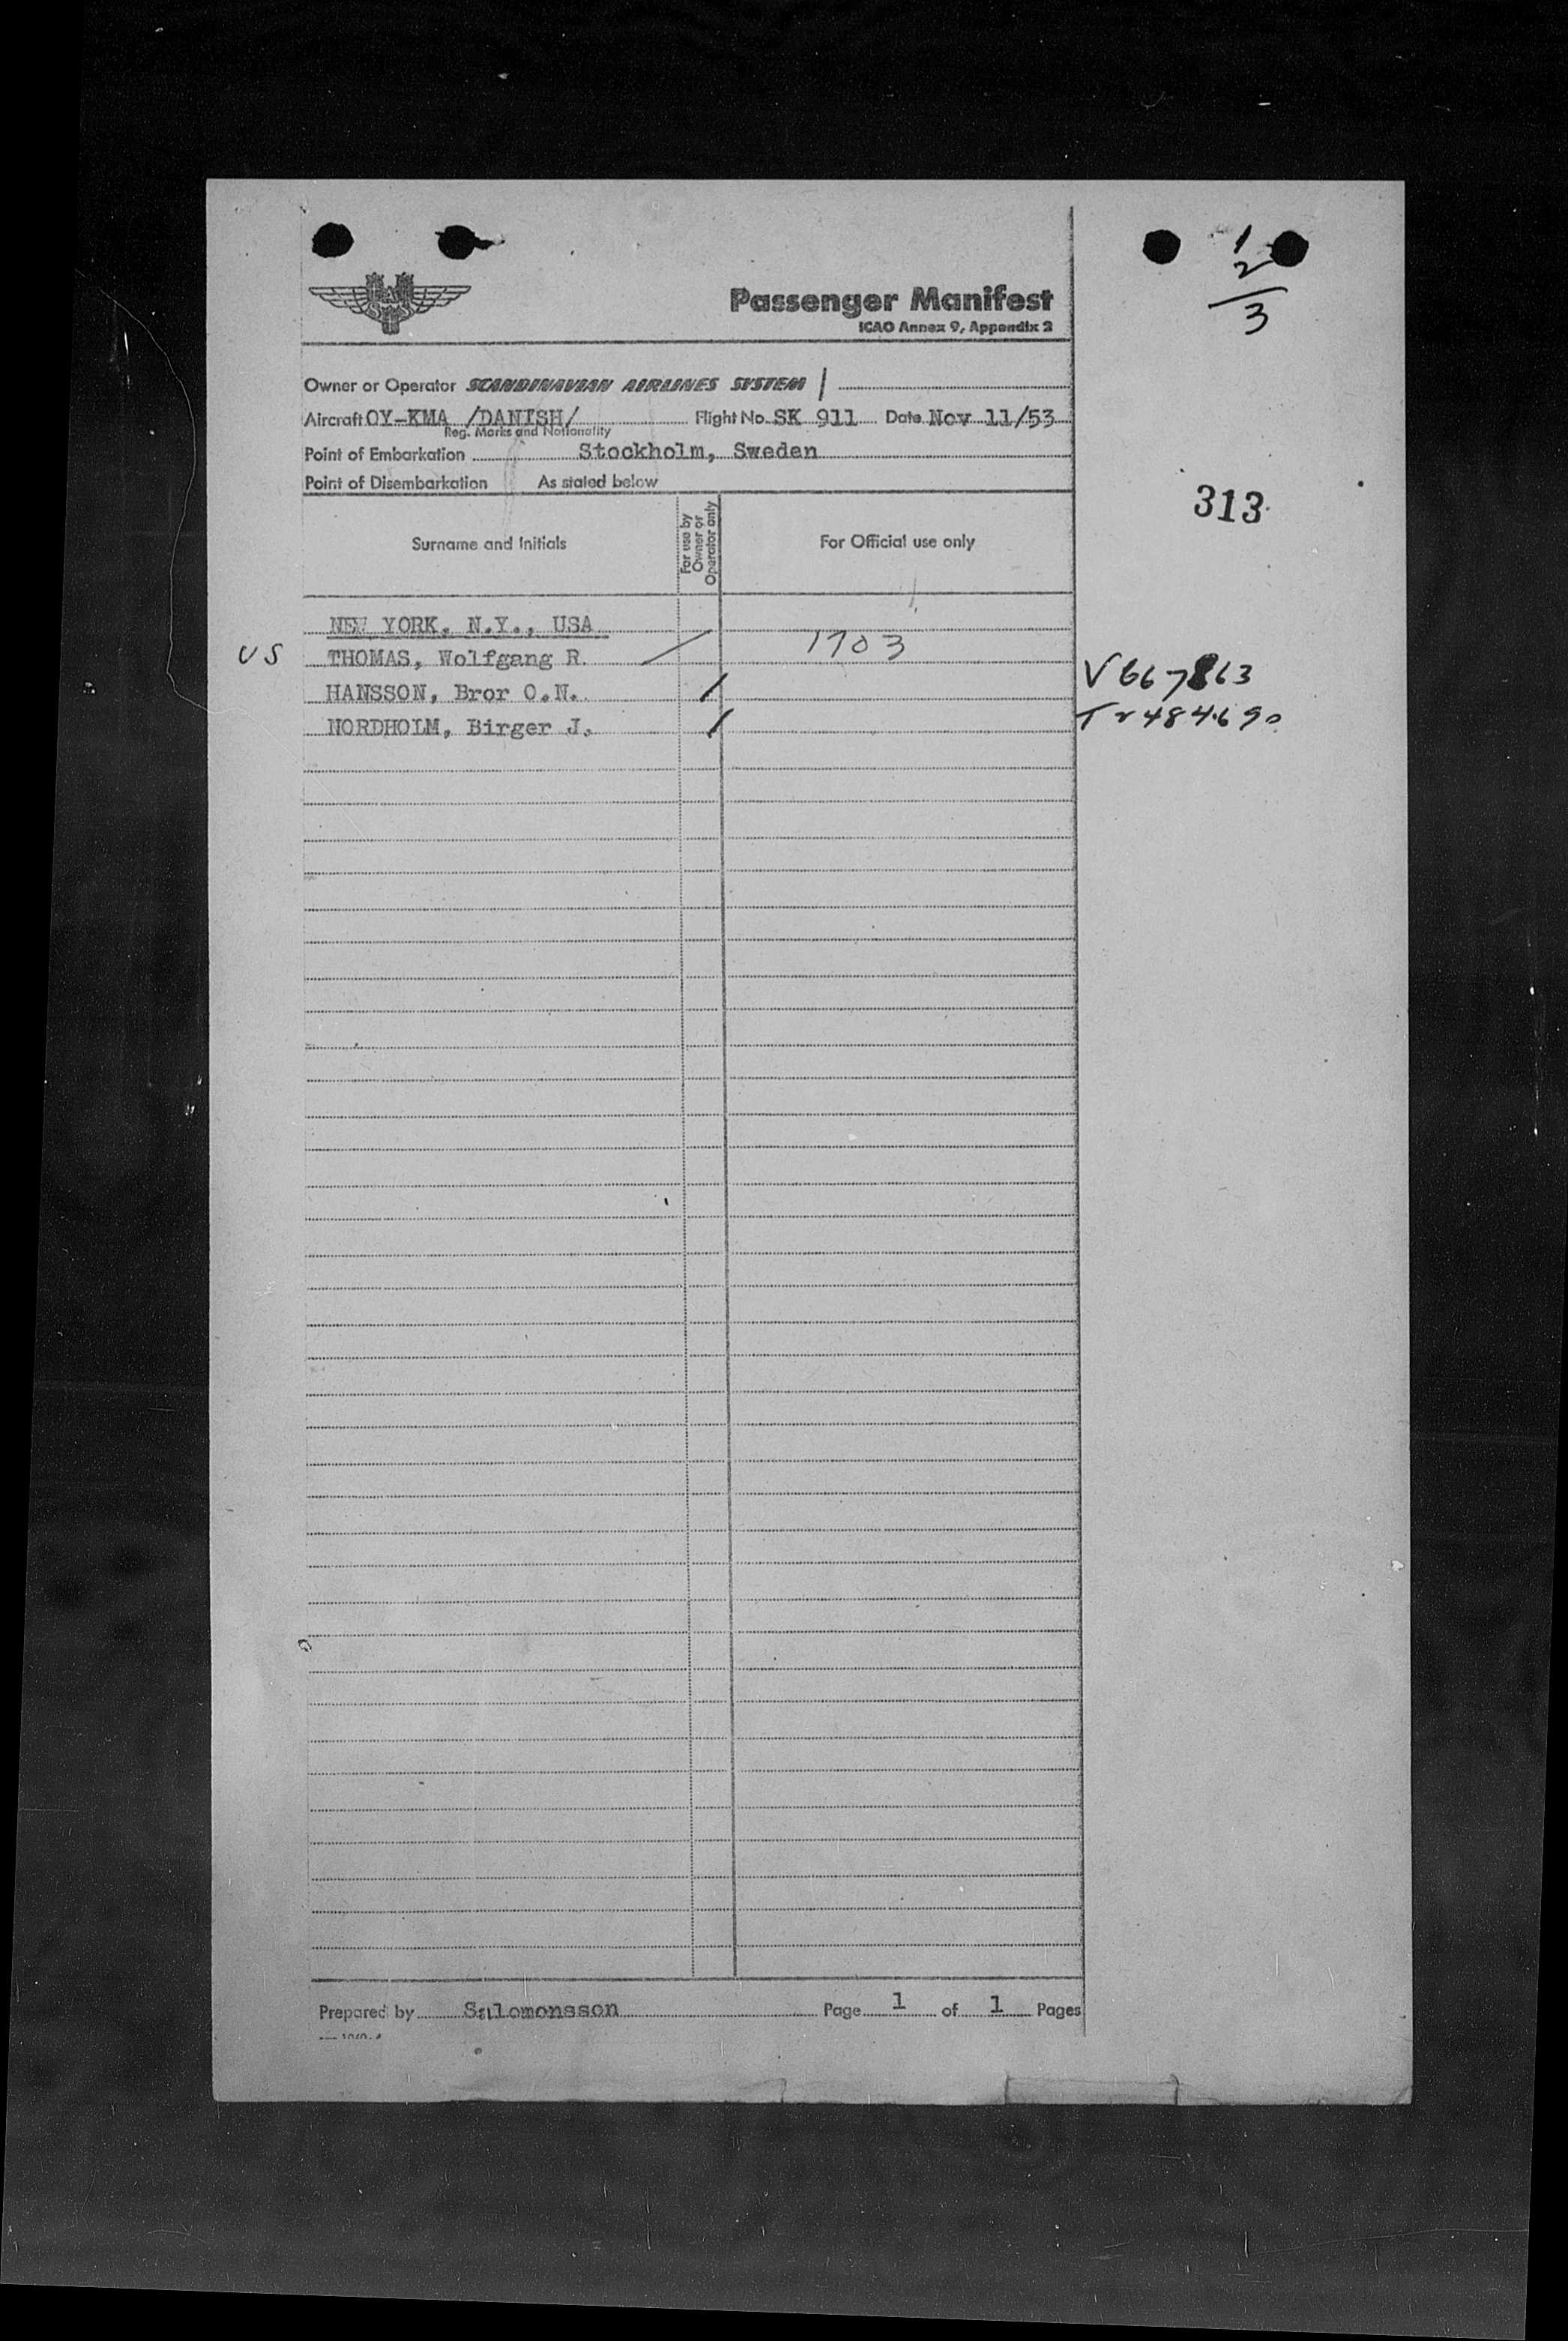 1
2
3
SAS
Passenger Manifest
ICAO Annex 9, Appendix 2
Owner or Operator SCANDINAVIAN AIRLINES SYSTEM
Aircraft OY-KMA /DANISH/ Flight No. SK 911 Date Nov 11/53
Reg. Marks and Nationality
Point of Embarkation Stockholm, Sweden
Point of Disembarkation As stated below
313
Surname and Initials
For use by Owner or Operator only
For Official use only
NEW YORK, N.Y., USA
US THOMAS, Wolfgang R. 1703
HANSSON, Bror O.N. V667863
NORDHOLM, Birger J. Tr484690
Prepared by Salomonsson Page 1 of 1 Pages